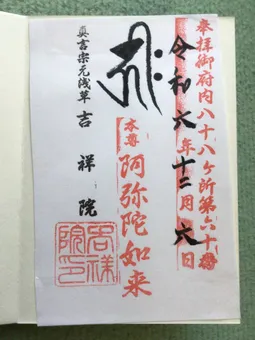 奉拝御府内八十八ヶ所第六十番
令和六年十二月六日
本尊
阿弥陀如来
真言宗元浅草
吉祥院
吉祥
院印